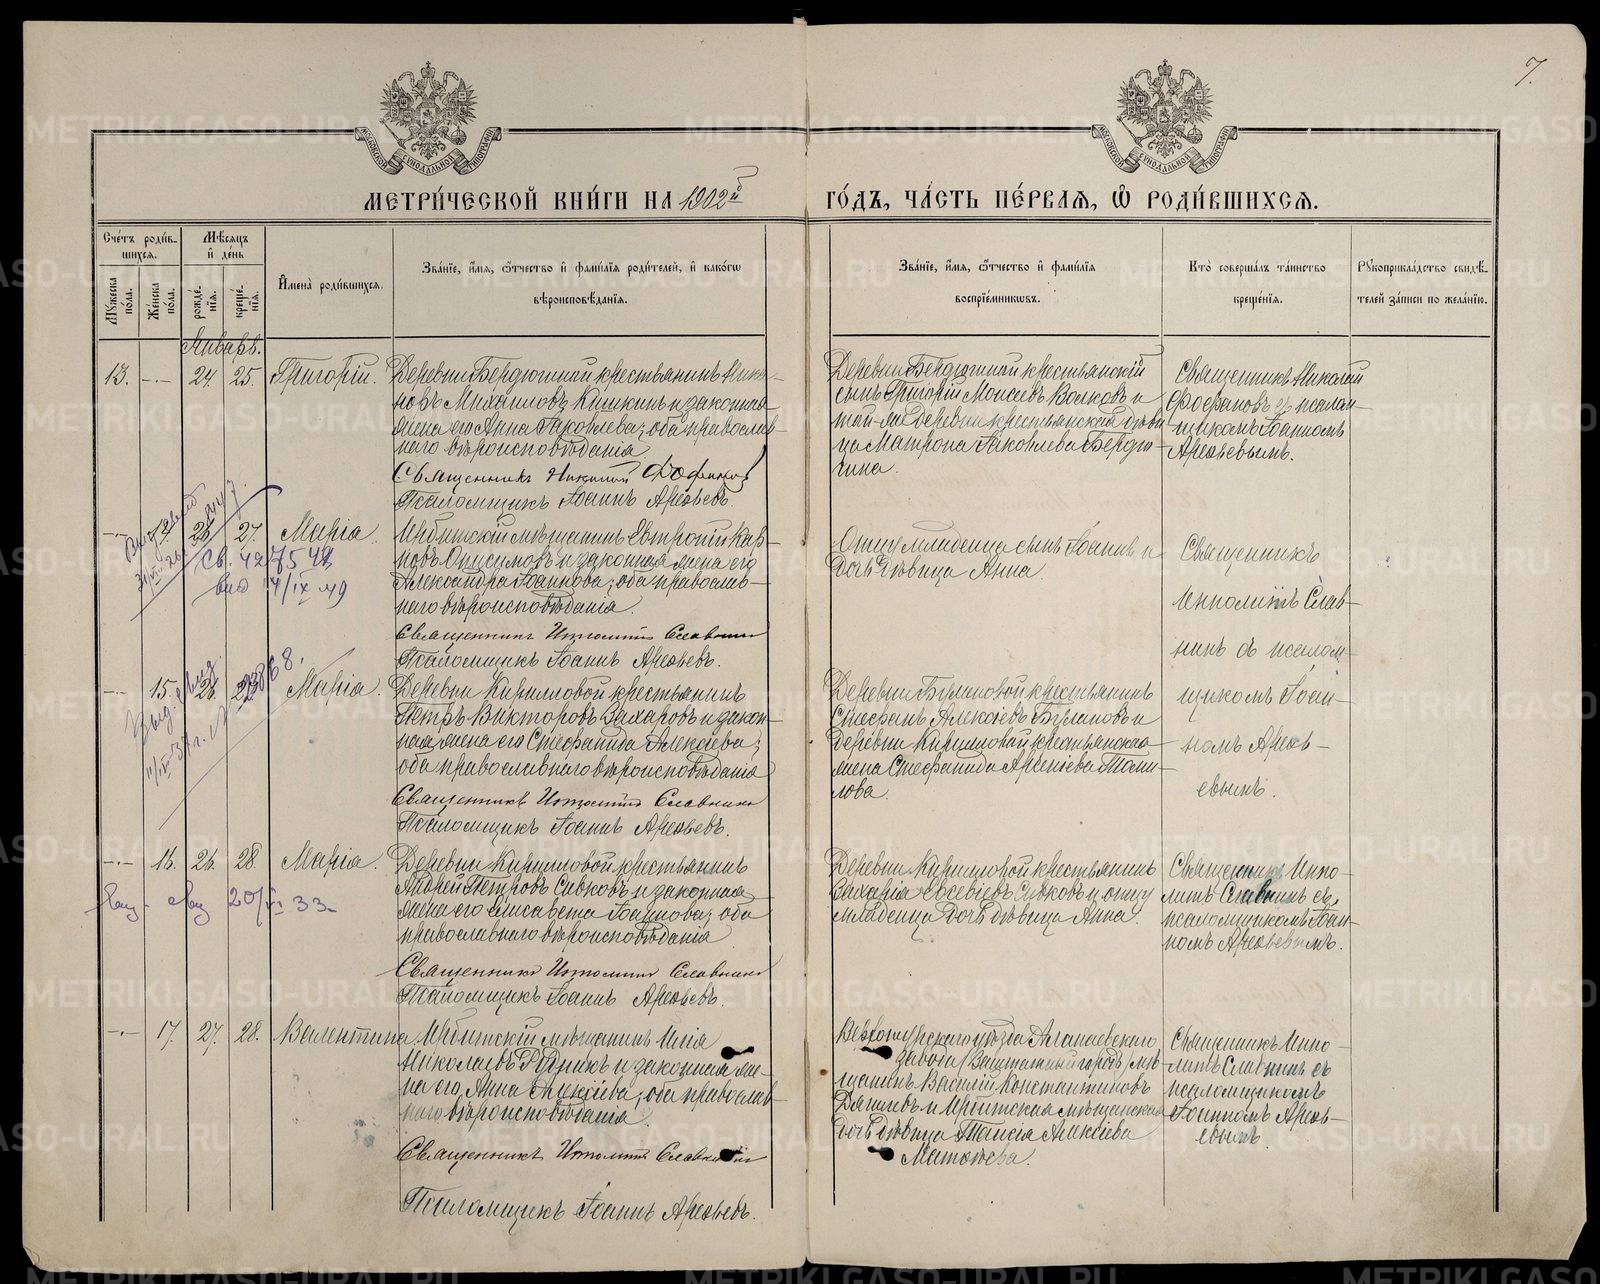 7.
МЕТРИ́ЧЕСКОЙ КНИ́ГИ НА 1902й ГО́ДЪ, ЧА́СТЬ ПЕ́РВАЯ, Ѡ РОДИ́ВШИХСЯ.
Сче́тъ роди́в-
шихся.
Мѣ́сяцъ
и҆ де́нь
Му́жеска
по́ла.
Же́нска
по́ла.
рожде́-
нїя.
креще́-
нїя.
И҆мена̀ роди́вшихся.
Зва́нїе, и҆́мя, ѻ҆́тчество и҆ фами́лїя роди́телей, и҆ како́гѡ
вѣроисповѣ́данїя.
Зва́нїе, и҆́мя, ѻ҆́тчество и҆ фами́лїя
воспрїе́мниковъ.
Кто̀ соверша́лъ та́инство
креще́нїя.
Рꙋкоприкла́дство свидѣ́-
телей за́писи по жела́нїю.
Январь.
13. -.- 24. 25. Григорій.
Деревни Бердюгиной крестьянинъ Нико-
норъ Михаиловъ Кишкинъ и законная
жена его Анна Іаковлева; оба православ-
наго вѣроисповѣданія
Священникъ Николай
Псаломщикъ Іоаннъ Арефьевъ.
Деревни Бердюгиной крестьянскій
сынъ Григорій Моисеевъ Волковъ и
той-же деревни крестьянская дѣви-
ца Матрона Іаковлева Бердю-
гина.
Священникъ Николай
съ псалом-
щикомъ Іоанномъ
Арефьевымъ.
27. Марія.
Ирбитскій мѣщанинъ Евтропій Кар-
повъ Онисимовъ и законная жена его
Александра Іоаннова; оба православ-
наго вѣроисповѣданія.
Священникъ Ипполитъ Славнинъ
Псаломщикъ Іоаннъ Арефьевъ.
Отцу младенца сынъ Іоаннъ и
дочь дѣвица Анна.
Священникъ
Ипполитъ Слав-
нинъ съ псалом-
щикомъ Іоан-
номъ Арефь-
евымъ.
-.- 15. Марія.
Деревни Кириловой крестьянинъ
Петръ Викторовъ Захаровъ и закон-
ная жена его Стефанида Алексіева;
оба православнаго вѣроисповѣданія
Священникъ Ипполитъ Славнинъ
Псаломщикъ Іоаннъ Арефьевъ.
Деревни Булановой крестьянинъ
Стефанъ Алексіевъ Булановъ и
деревни Кириловой крестьянская
жена Стефанида Арсеніева Томи-
лова.
-.- 16. 26. 28 Марія.
Деревни Кириловой крестьянинъ
Андрей Петровъ Сивковъ и законная
жена его Елисавета Іоаннова; оба
православнаго вѣроисповѣданія
20/ 33
Священникъ Ипполитъ Славнинъ
Псаломщикъ Іоаннъ Арефьевъ.
Деревни Кириловой крестьянинъ
Захарія Евсевіевъ Сивковъ и отцу
младенца дочь дѣвица Анна
Священникъ Иппо-
литъ Славнинъ съ
псаломщикомъ Іоан-
номъ Арефьевымъ.
-.- 17. 27. 28. Валентина
Ирбитскій мѣщанинъ Илія
Николаевъ и законная же-
на его Анна Алексіева; оба православ-
наго вѣроисповѣданія.
Священникъ Ипполитъ Славнинъ
Псаломщикъ Іоаннъ Арефьевъ.
Верхотурскаго уѣзда Алапаевскаго
завода (Заштатный городъ) мѣ-
щанинъ Василій Константиновъ
и Ирбитская мѣщанская
дочь дѣвица Таисія Алексіева
Священникъ Иппо-
литъ Славнинъ съ
псаломщикомъ
Іоанномъ Арефь-
евымъ.